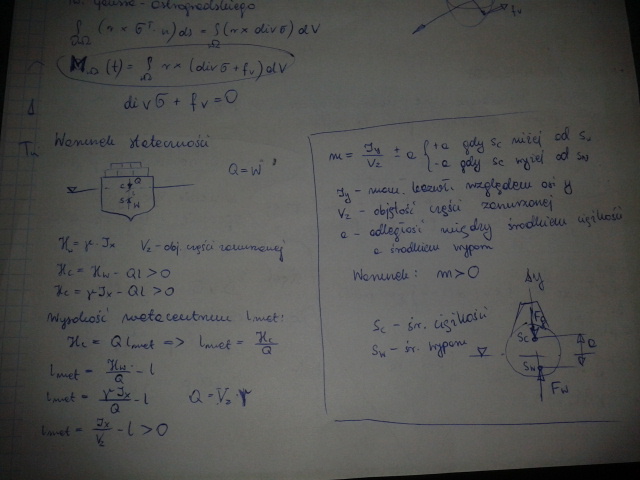 tw. Gaussa - Ostrogradskiego
∫∂Ω (r × σᵀ · n) ds = ∫Ω (r × div σ) dV
M∂Ω (t) = ∫Ω r × (div σ + fv) dV
div σ + fv = 0
fv
Warunek stateczności
Q = W
C Q
S W
Hw = γ · Jx Vz - obj. części zanurzonej
Hc = Hw - Ql > 0
Hc = γ Jx - Ql > 0
Wysokość metacentrum lmet:
Hc = Q lmet => lmet = Hc/Q
lmet = Hw/Q - l
lmet = γ Jx/Q - l Q = Vz · γ
lmet = Jx/Vz - l > 0
m = Jy/Vz ± a { +a gdy Sc niżej od Sw
-a gdy Sc wyżej od Sw
Jy - mom. bezwł. względem osi y
Vz - objętość części zanurzonej
a - odległość między środkiem ciężkości
a środkiem wyporu
Warunek: m > 0
y
Sc - śr. ciężkości
Sw - śr. wyporu
Sc
Sw
a
Fw